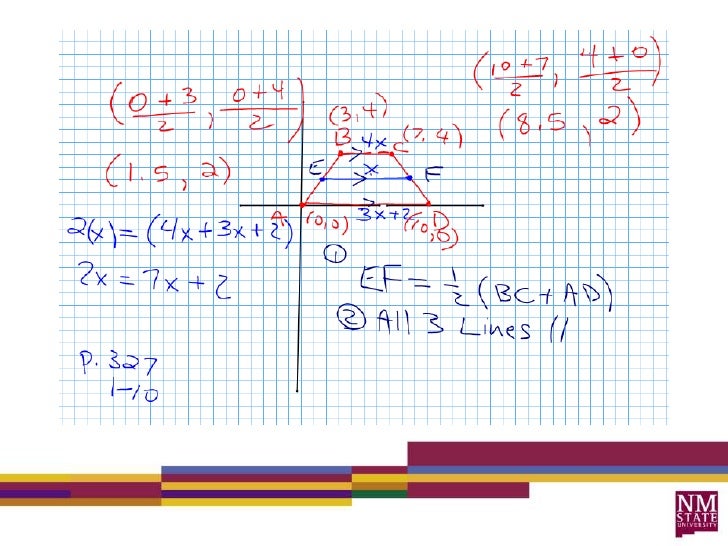 (0+3/2, 0+4/2)
(1.5, 2)
(10+7/2, 4+0/2)
(8.5, 2)
(3,4)
B 4x C (7,4)
E x F
A (0,0) 3x+2 D (10,0)
2(x) = (4x+3x+2)
2x = 7x+2
①
EF = 1/2 (BC + AD)
② All 3 Lines //
P. 327
1-10
NM
STATE
UNIVERSITY